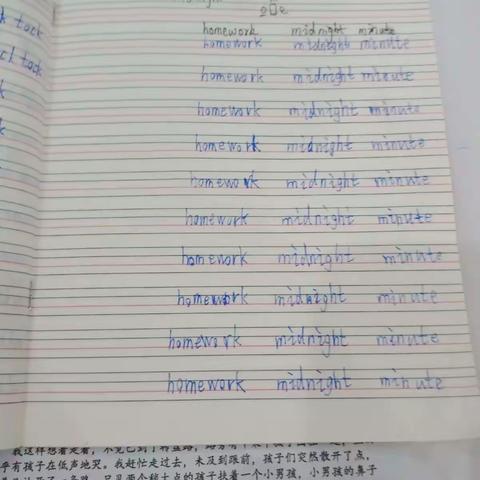 k tock
ck tock
homework midnight minute
homework midnight minute
homework midnight minute
homework midnight minute
homework midnight minute
homework midnight minute
homework midnight minute
homework midnight minute
homework midnight minute
homework midnight minute
homework midnight minute
我这样想着走着，不觉已到了
乎有孩子在低声地哭。我赶忙走过去，未及到跟前，孩子们突然散开了点，
两个稍大点的孩子扶着一个小男孩，小男孩的鼻子